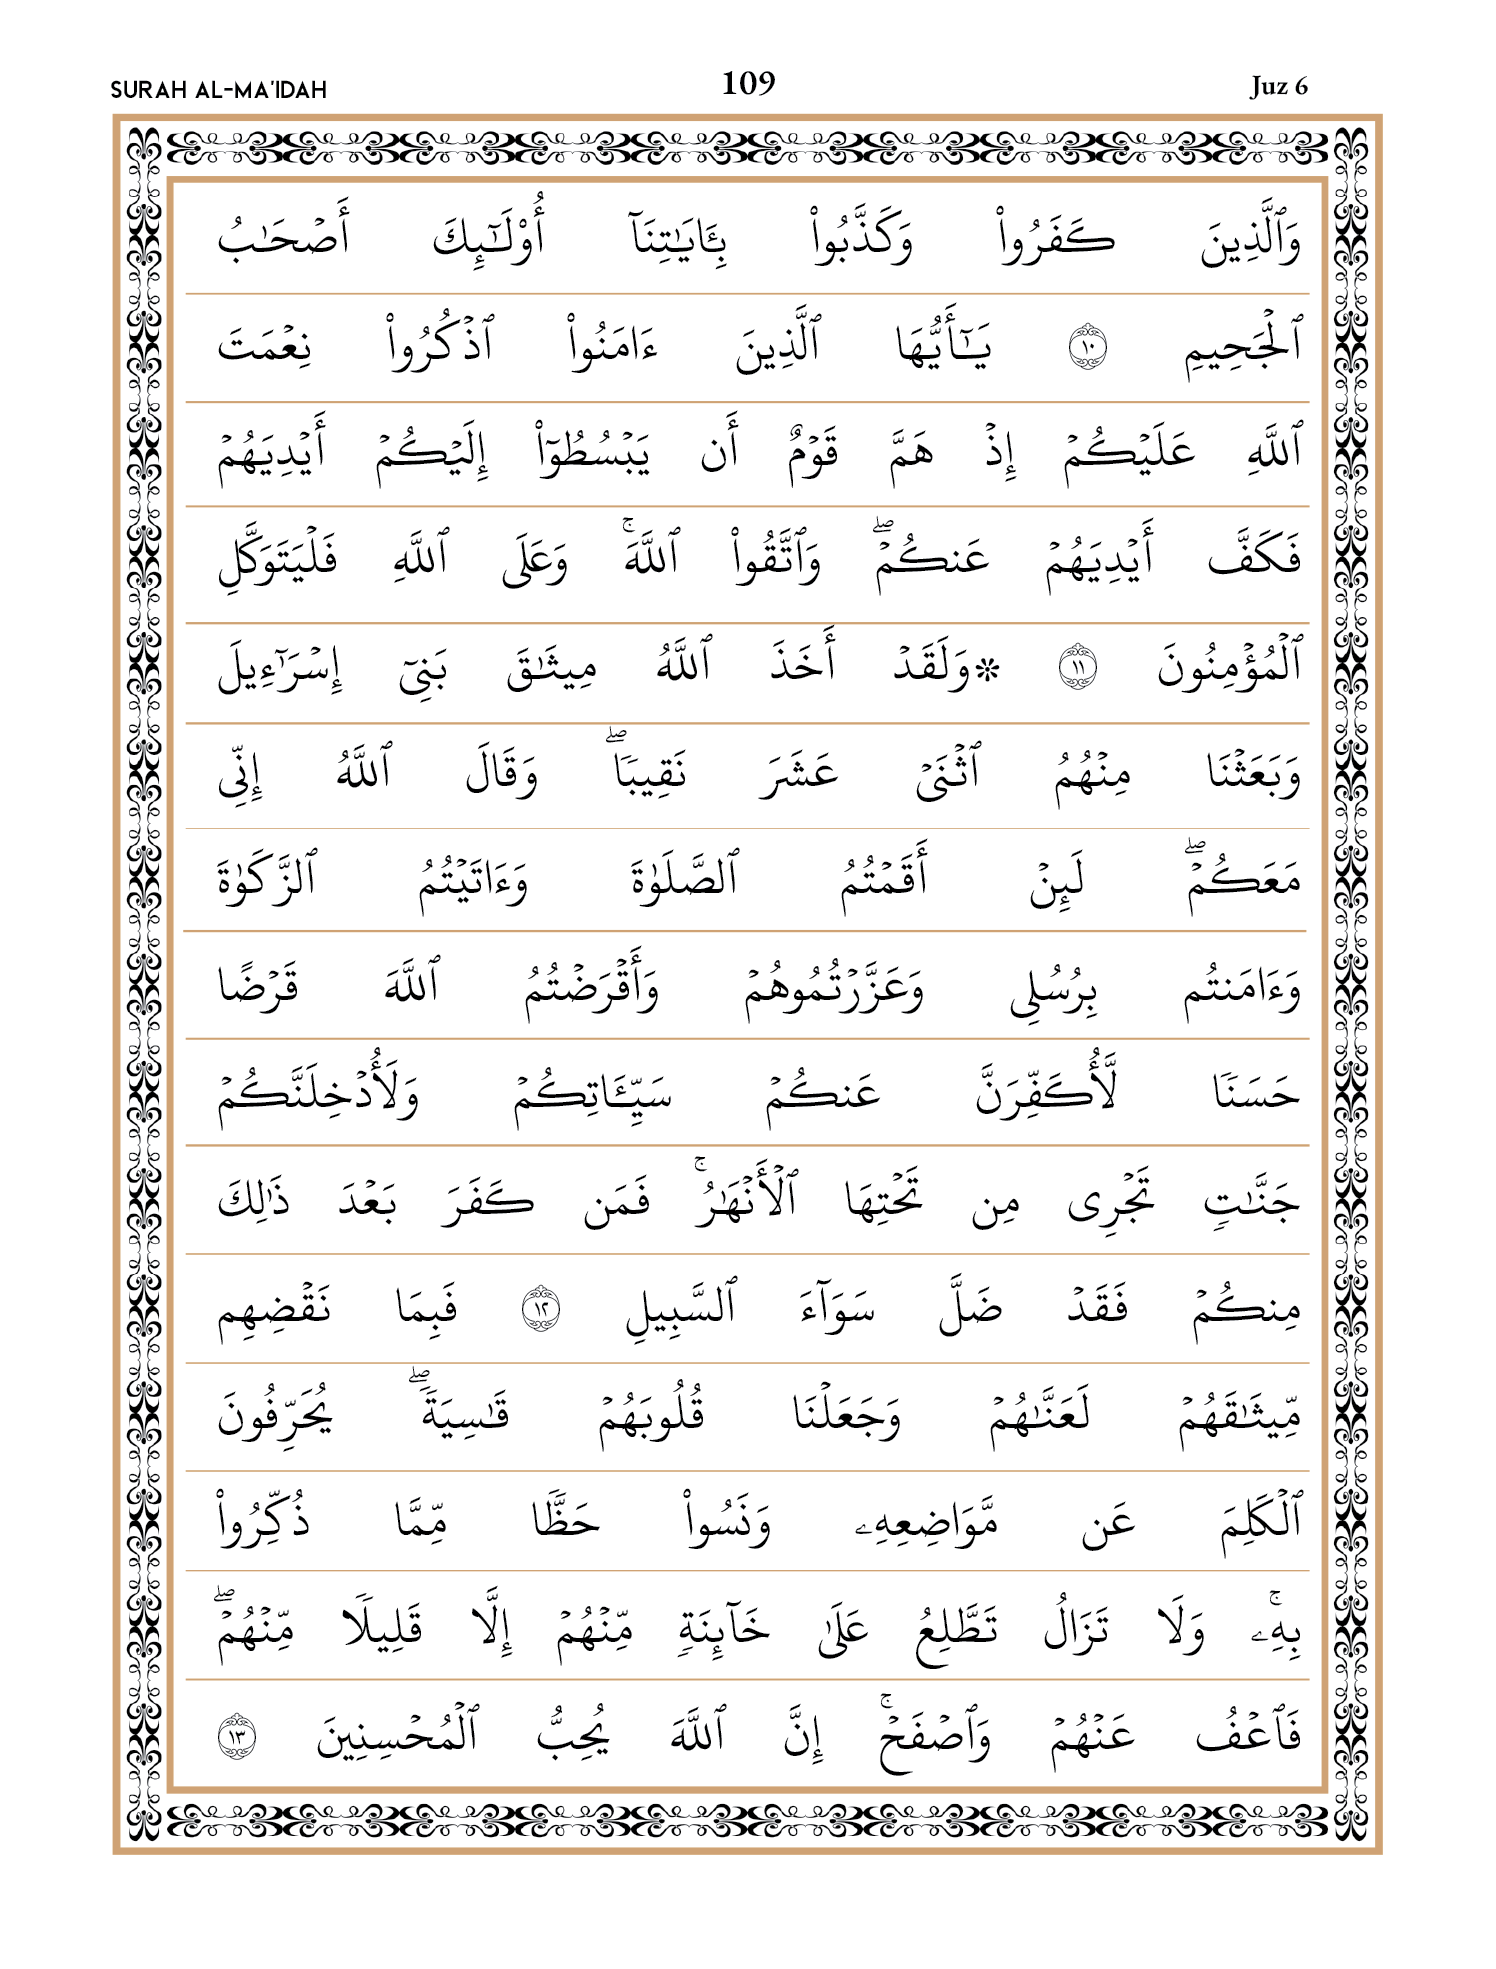 SURAH AL-MA'IDAH 109 Juz 6
وَٱلَّذِينَ كَفَرُوا۟ وَكَذَّبُوا۟ بِـَٔايَـٰتِنَآ أُو۟لَـٰٓئِكَ أَصْحَـٰبُ
ٱلْجَحِيمِ ١٠ يَـٰٓأَيُّهَا ٱلَّذِينَ ءَامَنُوا۟ ٱذْكُرُوا۟ نِعْمَتَ
ٱللَّهِ عَلَيْكُمْ إِذْ هَمَّ قَوْمٌ أَن يَبْسُطُوٓا۟ إِلَيْكُمْ أَيْدِيَهُمْ
فَكَفَّ أَيْدِيَهُمْ عَنكُمْ ۖ وَٱتَّقُوا۟ ٱللَّهَ ۚ وَعَلَى ٱللَّهِ فَلْيَتَوَكَّلِ
ٱلْمُؤْمِنُونَ ١١ ❇وَلَقَدْ أَخَذَ ٱللَّهُ مِيثَـٰقَ بَنِىٓ إِسْرَٰٓءِيلَ
وَبَعَثْنَا مِنْهُمُ ٱثْنَىْ عَشَرَ نَقِيبًا ۖ وَقَالَ ٱللَّهُ إِنِّى
مَعَكُمْ ۖ لَئِنْ أَقَمْتُمُ ٱلصَّلَوٰةَ وَءَاتَيْتُمُ ٱلزَّكَوٰةَ
وَءَامَنتُم بِرُسُلِى وَعَزَّرْتُمُوهُمْ وَأَقْرَضْتُمُ ٱللَّهَ قَرْضًا
حَسَنًا لَّأُكَفِّرَنَّ عَنكُمْ سَيِّـَٔاتِكُمْ وَلَأُدْخِلَنَّكُمْ
جَنَّـٰتٍ تَجْرِى مِن تَحْتِهَا ٱلْأَنْهَـٰرُ ۚ فَمَن كَفَرَ بَعْدَ ذَٰلِكَ
مِنكُمْ فَقَدْ ضَلَّ سَوَآءَ ٱلسَّبِيلِ ١٢ فَبِمَا نَقْضِهِم
مِّيثَـٰقَهُمْ لَعَنَّـٰهُمْ وَجَعَلْنَا قُلُوبَهُمْ قَـٰسِيَةً ۖ يُحَرِّفُونَ
ٱلْكَلِمَ عَن مَّوَاضِعِهِۦ وَنَسُوا۟ حَظًّا مِّمَّا ذُكِّرُوا۟
بِهِۦ ۚ وَلَا تَزَالُ تَطَّلِعُ عَلَىٰ خَآئِنَةٍ مِّنْهُمْ إِلَّا قَلِيلًا مِّنْهُمْ ۖ
فَٱعْفُ عَنْهُمْ وَٱصْفَحْ ۚ إِنَّ ٱللَّهَ يُحِبُّ ٱلْمُحْسِنِينَ ١٣